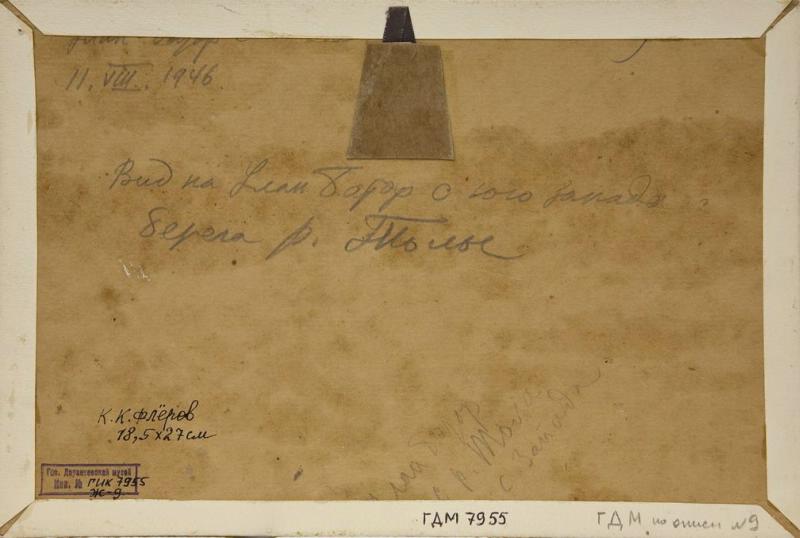 11. VIII. 1946
Вид на Улан Батор с юго запада
берега р. Толы
К.К. Флёров
18,5 x 27 см
Гос. Дарвиновский музей
Инв. № ГИК 7955
Ж-9
Улан Батор
с р. Толы
с запада
ГДМ 7955
ГДМ по описи №9